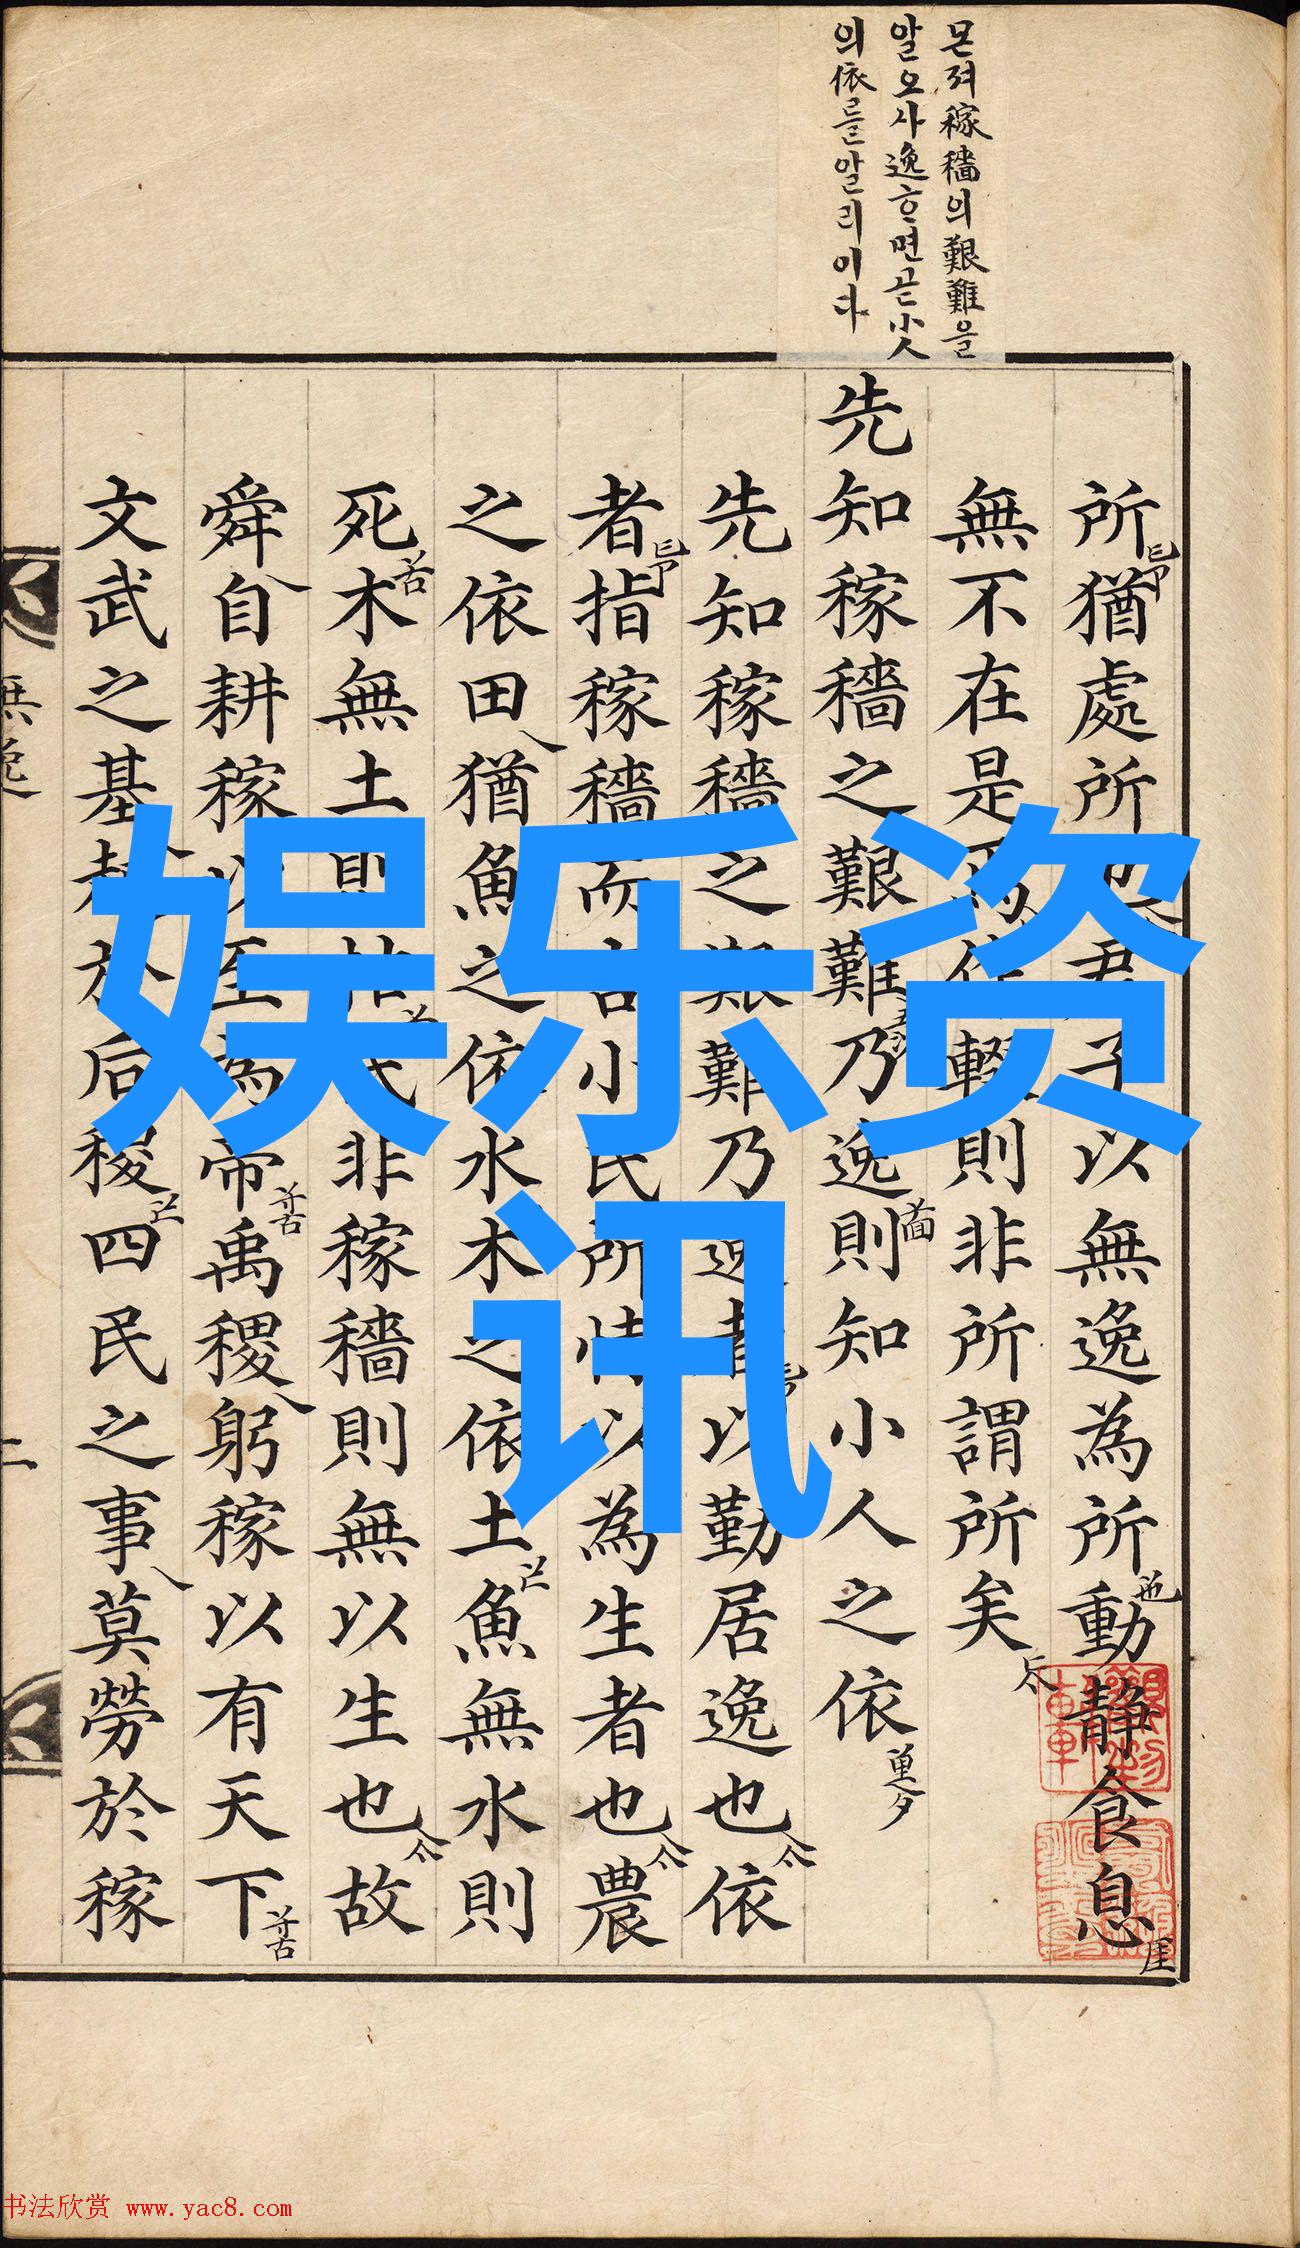 몬져稼穡의艱難을
알오사逸ᄒᆞ면곧小人
의依를알리이다
所猶處所也君子以無逸為所動静食息
無不在是焉作輟則非所謂所矣
先知稼穡之艱難乃逸則知小人之依
先知稼穡之艱難乃逸者以勤居逸也依
者指稼穡而言小民所恃以為生者也農
之依田猶魚之依水木之依土魚無水則
死木無土則枯民非稼穡則無以生也故
舜自耕稼以至為帝禹稷躬稼以有天下
文武之基起於后稷四民之事莫勞於稼
無逸
二
娱乐资
讯
书法欣赏 www.yac8.com